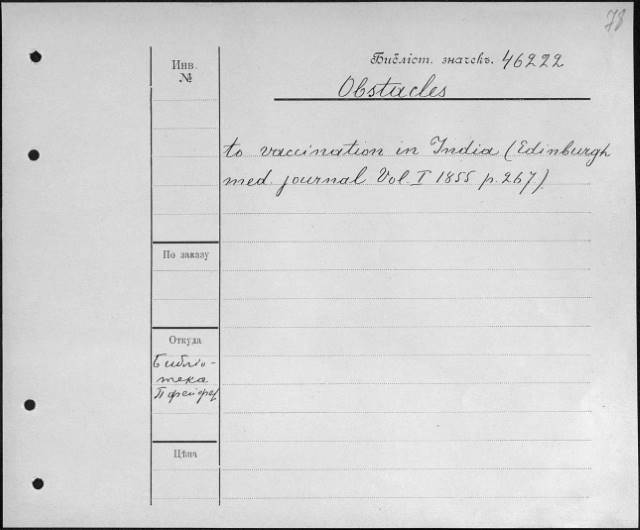 78
Инв.
№
Библіот. значекъ. 46222
Obstacles
to vaccination in India (Edinburgh
med. journal Vol. I 1855 p. 267)
По заказу
Откуда
Библіо-
тека
Пфейфер
Цѣна